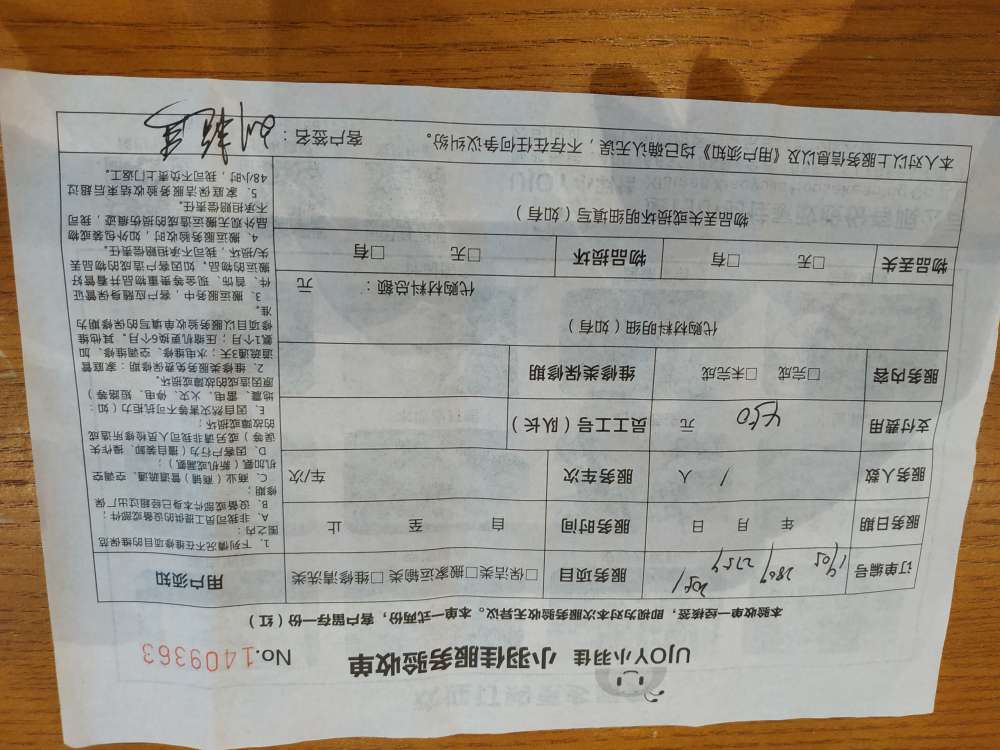 UJOY小羽佳 小羽佳服务验收单 No.1409363
本验收单一经核签，即视为对本次服务验收无异议。本单一式两份，客户留存一份（红）
订单编号 1902 2809 2759 2051 服务项目 □保洁类□搬家运输类 □维修清洗类 用户须知
服务日期 年 月 日 服务时间 自 至 止
服务人数 / 人 服务车次 车/次
支付费用 450 元 员工工号（队长）
服务内容 □完成 □未完成 维修类保修期
代购材料明细（如有）
代购材料总额： 元
物品丢失 □无 □有 物品损坏 □无 □有
物品丢失或损坏明细填写（如有）
1．下列情况不在维修项目的维保范
围之内：
A．非我司员工提供的设备或部件；
B．设备或部件本身已经超过出厂保
修期；
C．商业（商铺）管道疏通、空调空
机加氨（新机或漏氨）；
D．因客户行为（擅自装卸、操作失
误等）或另请非我司人员检修所造成
的故障或损坏；
E．因自然灾害等不可抗力（如：
地震、雷电、火灾、停电、短路等）
原因造成的故障或损坏。
2．维修类服务免费保修期：家庭管
道疏通3天；水电维修、空调维修、加
氨1个月；压缩机更换6个月。其他维
修项目以服务验收单填写的保修期为
准。
3．搬运服务中，客户应随身保管证
件、首饰、现金等贵重物品并看管好
搬运的物品，如因客户造成的物品丢
失/损坏，我司不承担赔偿责任。
4．搬运服务验收时，如外包装或物
品外观无搬运造成的损伤痕迹，我司
不承担赔偿责任。
5．家庭保洁服务验收结束后超过
48小时，我司不负责上门返工。
本人对以上服务信息以及《用户须知》均已确认无误，不存在任何争议纠纷。 客户签名：